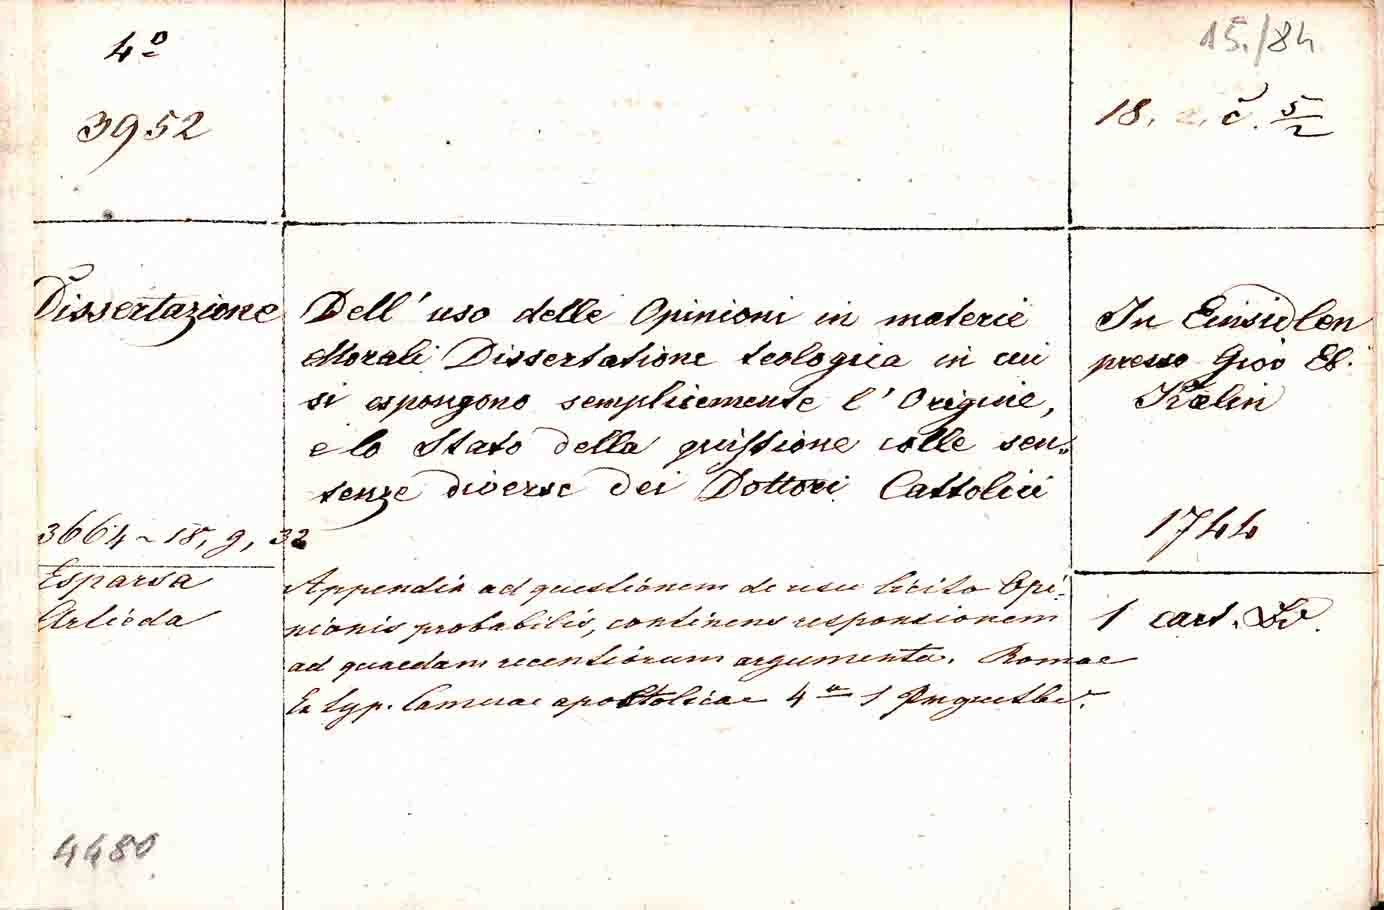 4º
3952
15./84
18. 2. č. 5/2
Dissertazione
Dell' uso delle Opinioni in materie
Morali Dissertatione teologica in cui
si espongono semplicemente l' Origine,
e lo Stato della quistione colle sen-
tenze diverse dei Dottori Cattolici
In Einsidlen
presso Gioo Eb.
Kælin
1744
3664 ~ 18, g, 32
Esparsa
Artieda
Appendix ad questionem de usu licito Opi-
nionis probabilis, continens responsionem
ad quaedam recentiorum argumenta. Romae
Ex typ. Camerae apostolicae 4º 1
1 cart.
4480